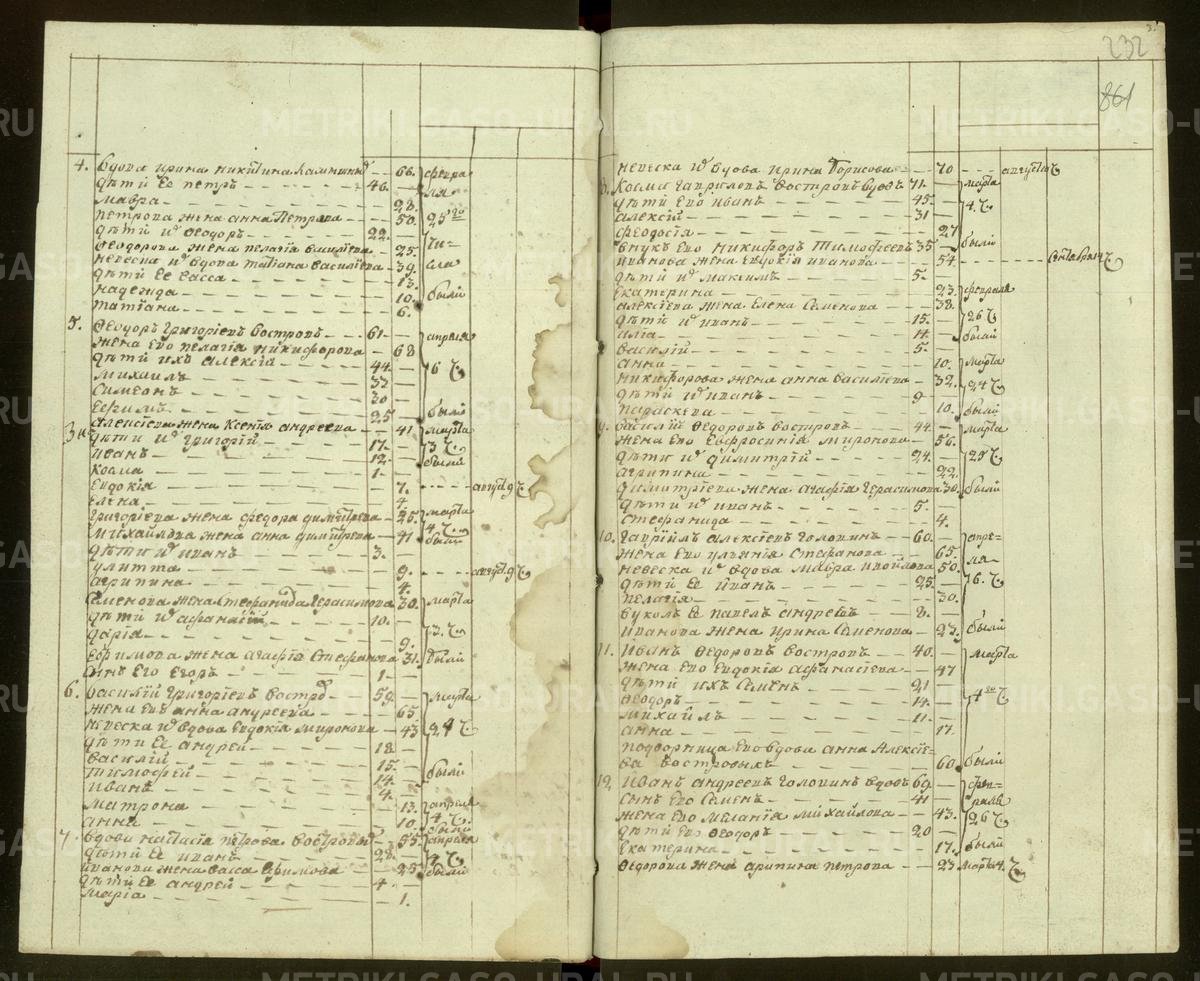 232
861
4. вдова ирина никитина 66. февра
дѣти Ее петръ 46. ля
мавра 28.
петрова жена анна Петрова 50. 25го
дѣти и Ѳеодоръ 22.
Ѳеодорова жена пелагіа василіева 25. чи-
невеска и вдова татіана василіева 39. сла
дѣти Ее васса 13.
надежда 10. были
татіана 6.
5. Ѳеодоръ григоріевъ востровъ 61 апреля
жена Его пелагіа никифорова 68
дѣти ихъ алексіи 44. 6 ч.
михаилъ 33
Симеонъ 30
Ефимъ 25 были
алексіева жена Ксенія андреева 41 марта
дѣти и григорій 17. 3 ч.
иванъ 12. были
косма 1.
Евдокіа 7. август. 9 ч
елена 4.
григоріева жена федора димитріева 25. марта
михайлова жена анна димитріева 41 4 ч. были
дѣти и иванъ 3.
улитта 9. август. 9 ч
агрипина 4.
Семенова жена Стефанида герасимова 30. марта
дѣти и афанасій 10.
дарія 9. 3. ч.
Ефимова жена агафіа Стефанова 31. были
сынъ Его Егоръ 1.
6. василій григоріевъ востро 59. марта
жена Его анна андреева 65.
невеска и вдова Евдокіа миронова 43 24 ч
дѣти Ее андрей 18.
василій 15.
тимофей 14. были
иванъ 4.
матрона 13. апреля
анна 10. 4. ч. были
7. вдова настасіа петрова вострова 55. апреля
дѣти Ее иванъ 28. 4 ч
иванова жена васса Ефимова 25 были
дѣти Ее андрей 4.
маріа 1.
невеска и вдова ирина борисова 70 августа ч
косма гавриловъ востровъ вдовъ 71. марта
дѣти Его иванъ 45. 4. ч
алексій 31
феодосіа 27
внукъ Его никифоръ тимофеевъ 35 были
иванова жена Евдокіа иванова 54. сентября ч
дѣти и максимъ 5.
Екатерина 23. февраля
алексіева жена Елена Семенова 38.
дѣти и иванъ 15. 26 ч
14. были
василій 5.
анна 10. марта
никифорова жена анна василіева 32. 24 ч
дѣти и иванъ 9
параскева 10. были
9. василій Ѳедоровъ востровъ 44. марта
жена Его Евфросиніа миронова 56.
дѣти и димитрій 24. 25 ч
агрипина 22.
димитріева жена агафіа герасимова 30. были
дѣти и иванъ 5.
стефанида 4.
10. гавріилъ алексіевъ головинъ 60. апре-
жена Его ульяніа Стефанова 65. ля
невеска и вдова мавра 50.
дѣти Ее иванъ 25. 6. ч
пелагіа 30.
внукъ Ее павелъ андреевъ 8.
иванова жена ирина Семенова 23. были
11. Иванъ Ѳедоровъ востровъ 40. марта
жена Его Евдокіа афанасіева 47
дѣти ихъ Семенъ 21 4го ч
Ѳеодоръ 14.
михайлъ 11.
анна 17.
подворница Его вдова анна Алексіе-
ва вострова 60 были
12. Иванъ андреевъ головинъ вдовъ 69. фев-
сынъ Его Семенъ 41 раля
жена Его меланіа михайлова 43. 26 ч
дѣти Его Ѳеодоръ 20
Екатерина 17. были
Ѳедорова жена арипина петрова 23 марта 4. ч